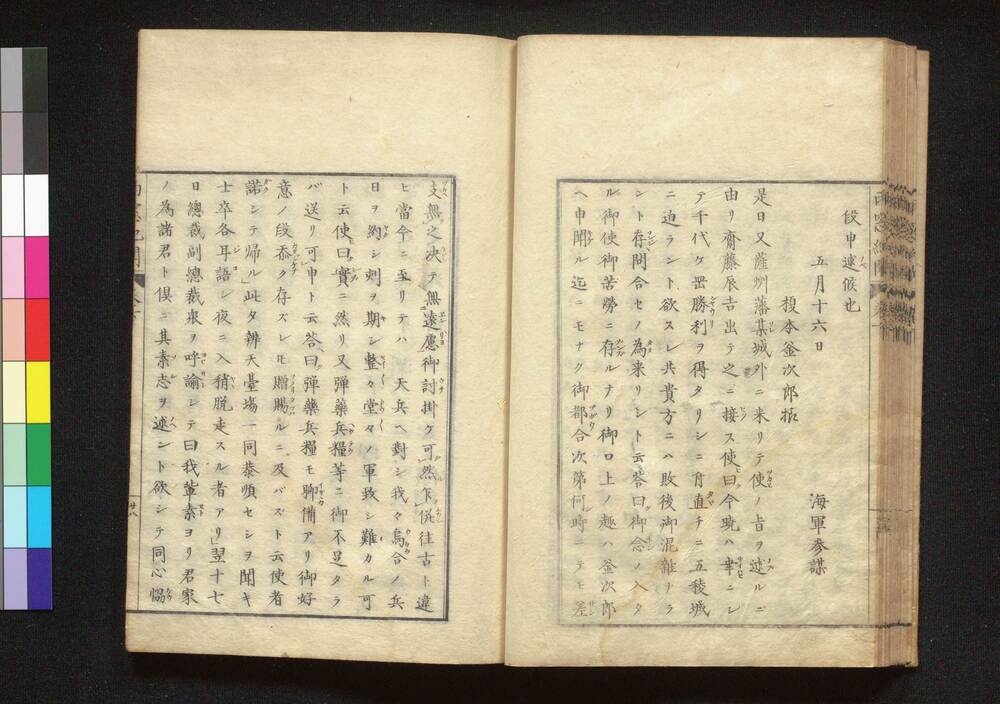 段申述候也
五月十六日
榎本釜次郎拓
海軍参謀
是日又薩州藩某城外ニ来リテ使ノ旨ヲ述ルニ
由リ齋藤辰吉出テ之ニ接ス使曰今暁ハ幸ニシ
テ千代ケ罡勝利ヲ得タリシニ有直チニ五稜城
ニ迫ラント欲スレ共貴方ニハ敗後御混雜ナラ
ント存問合セノ為来リシト云答曰御念ノ入タ
ル御使御苦勞ニ存ルナリ御口上ノ趣ハ釜次郎
ヘ申聞ル迄ニモナク御都合次第何時ニテモ差
支無之决テ無遠慮御討掛ケ可然乍併往古ト違
ヒ當今ニ至リテハ 天兵ヘ對シ我々烏合ノ兵
日ヲ約シ刻ヲ期シ整々堂々ノ軍致シ難カル可
ト云使曰實ニ然リ又彈藥兵糧等ニ御不足タラ
バ送リ可申ト云答曰彈藥兵糧モ聊備アリ御好
意ノ段忝ク存ズレモ贈賜ルニ及バズト云使者
諾シテ帰ル此夕辨天臺場一同恭順セシヲ聞キ
士卒各耳語シ夜ニ入稍脱走スル者アリ翌十七
日總裁副總裁衆ヲ呼諭シテ曰我輩素ヨリ君家
ノ為諸君ト倶ニ其素志ヲ述ント欲シテ同心恊